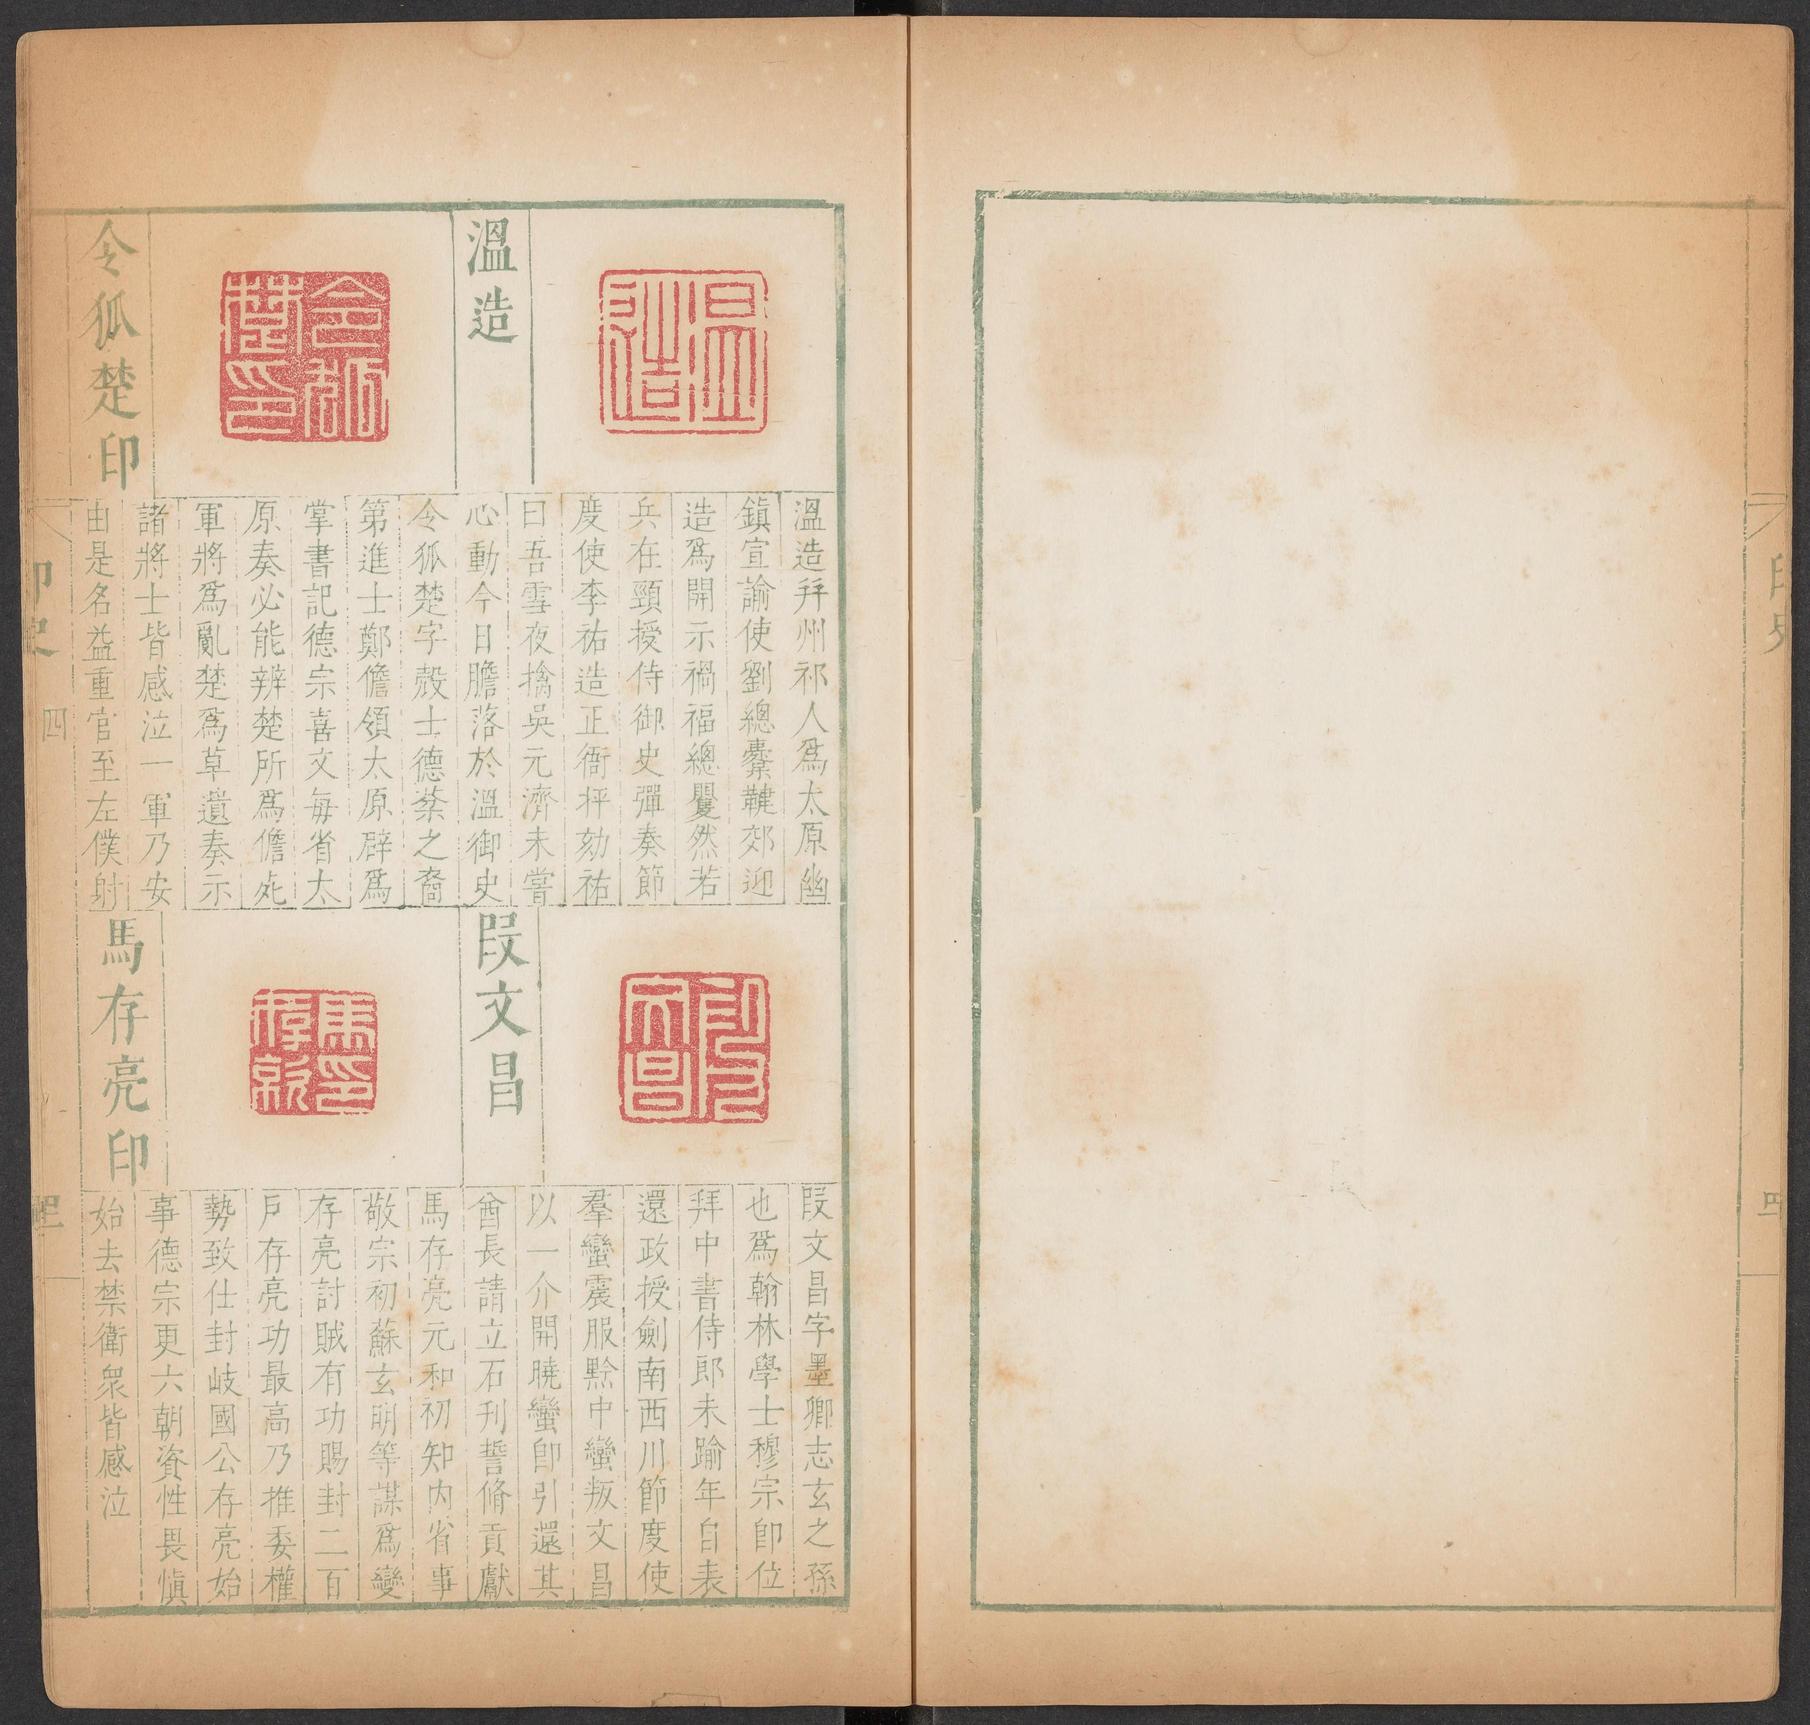 印史
溫造
溫造拜州祁人爲太原幽
鎮宣諭使劉總櫜鞬郊迎
造爲開示禍福總矍然若
兵在頸授侍御史彈奏節
度使李祐造正衙抨劾祐
曰吾雪夜擒吳元濟未嘗
心動今日膽落於溫御史
令狐楚印
令狐楚字殼士德棻之裔
第進士鄭儋領太原辟爲
掌書記德宗喜文每省太
原奏必能辨楚所爲儋死
軍將爲亂楚爲草遺奏示
諸將士皆感泣一軍乃安
由是名益重官至左僕射
段文昌
段文昌字墨卿志玄之孫
也爲翰林學士穆宗卽位
拜中書侍郎未踰年自表
還政授劍南西川節度使
羣蠻震服黔中蠻叛文昌
以一介開曉蠻卽引還其
酋長請立石刊誓脩貢獻
馬存亮印
馬存亮元和初知內省事
敬宗初蘇玄明等謀爲變
存亮討賊有功賜封二百
戶存亮功最高乃推委權
勢致仕封岐國公存亮始
事德宗更六朝資性畏愼
始去禁衛衆皆感泣
印史
四